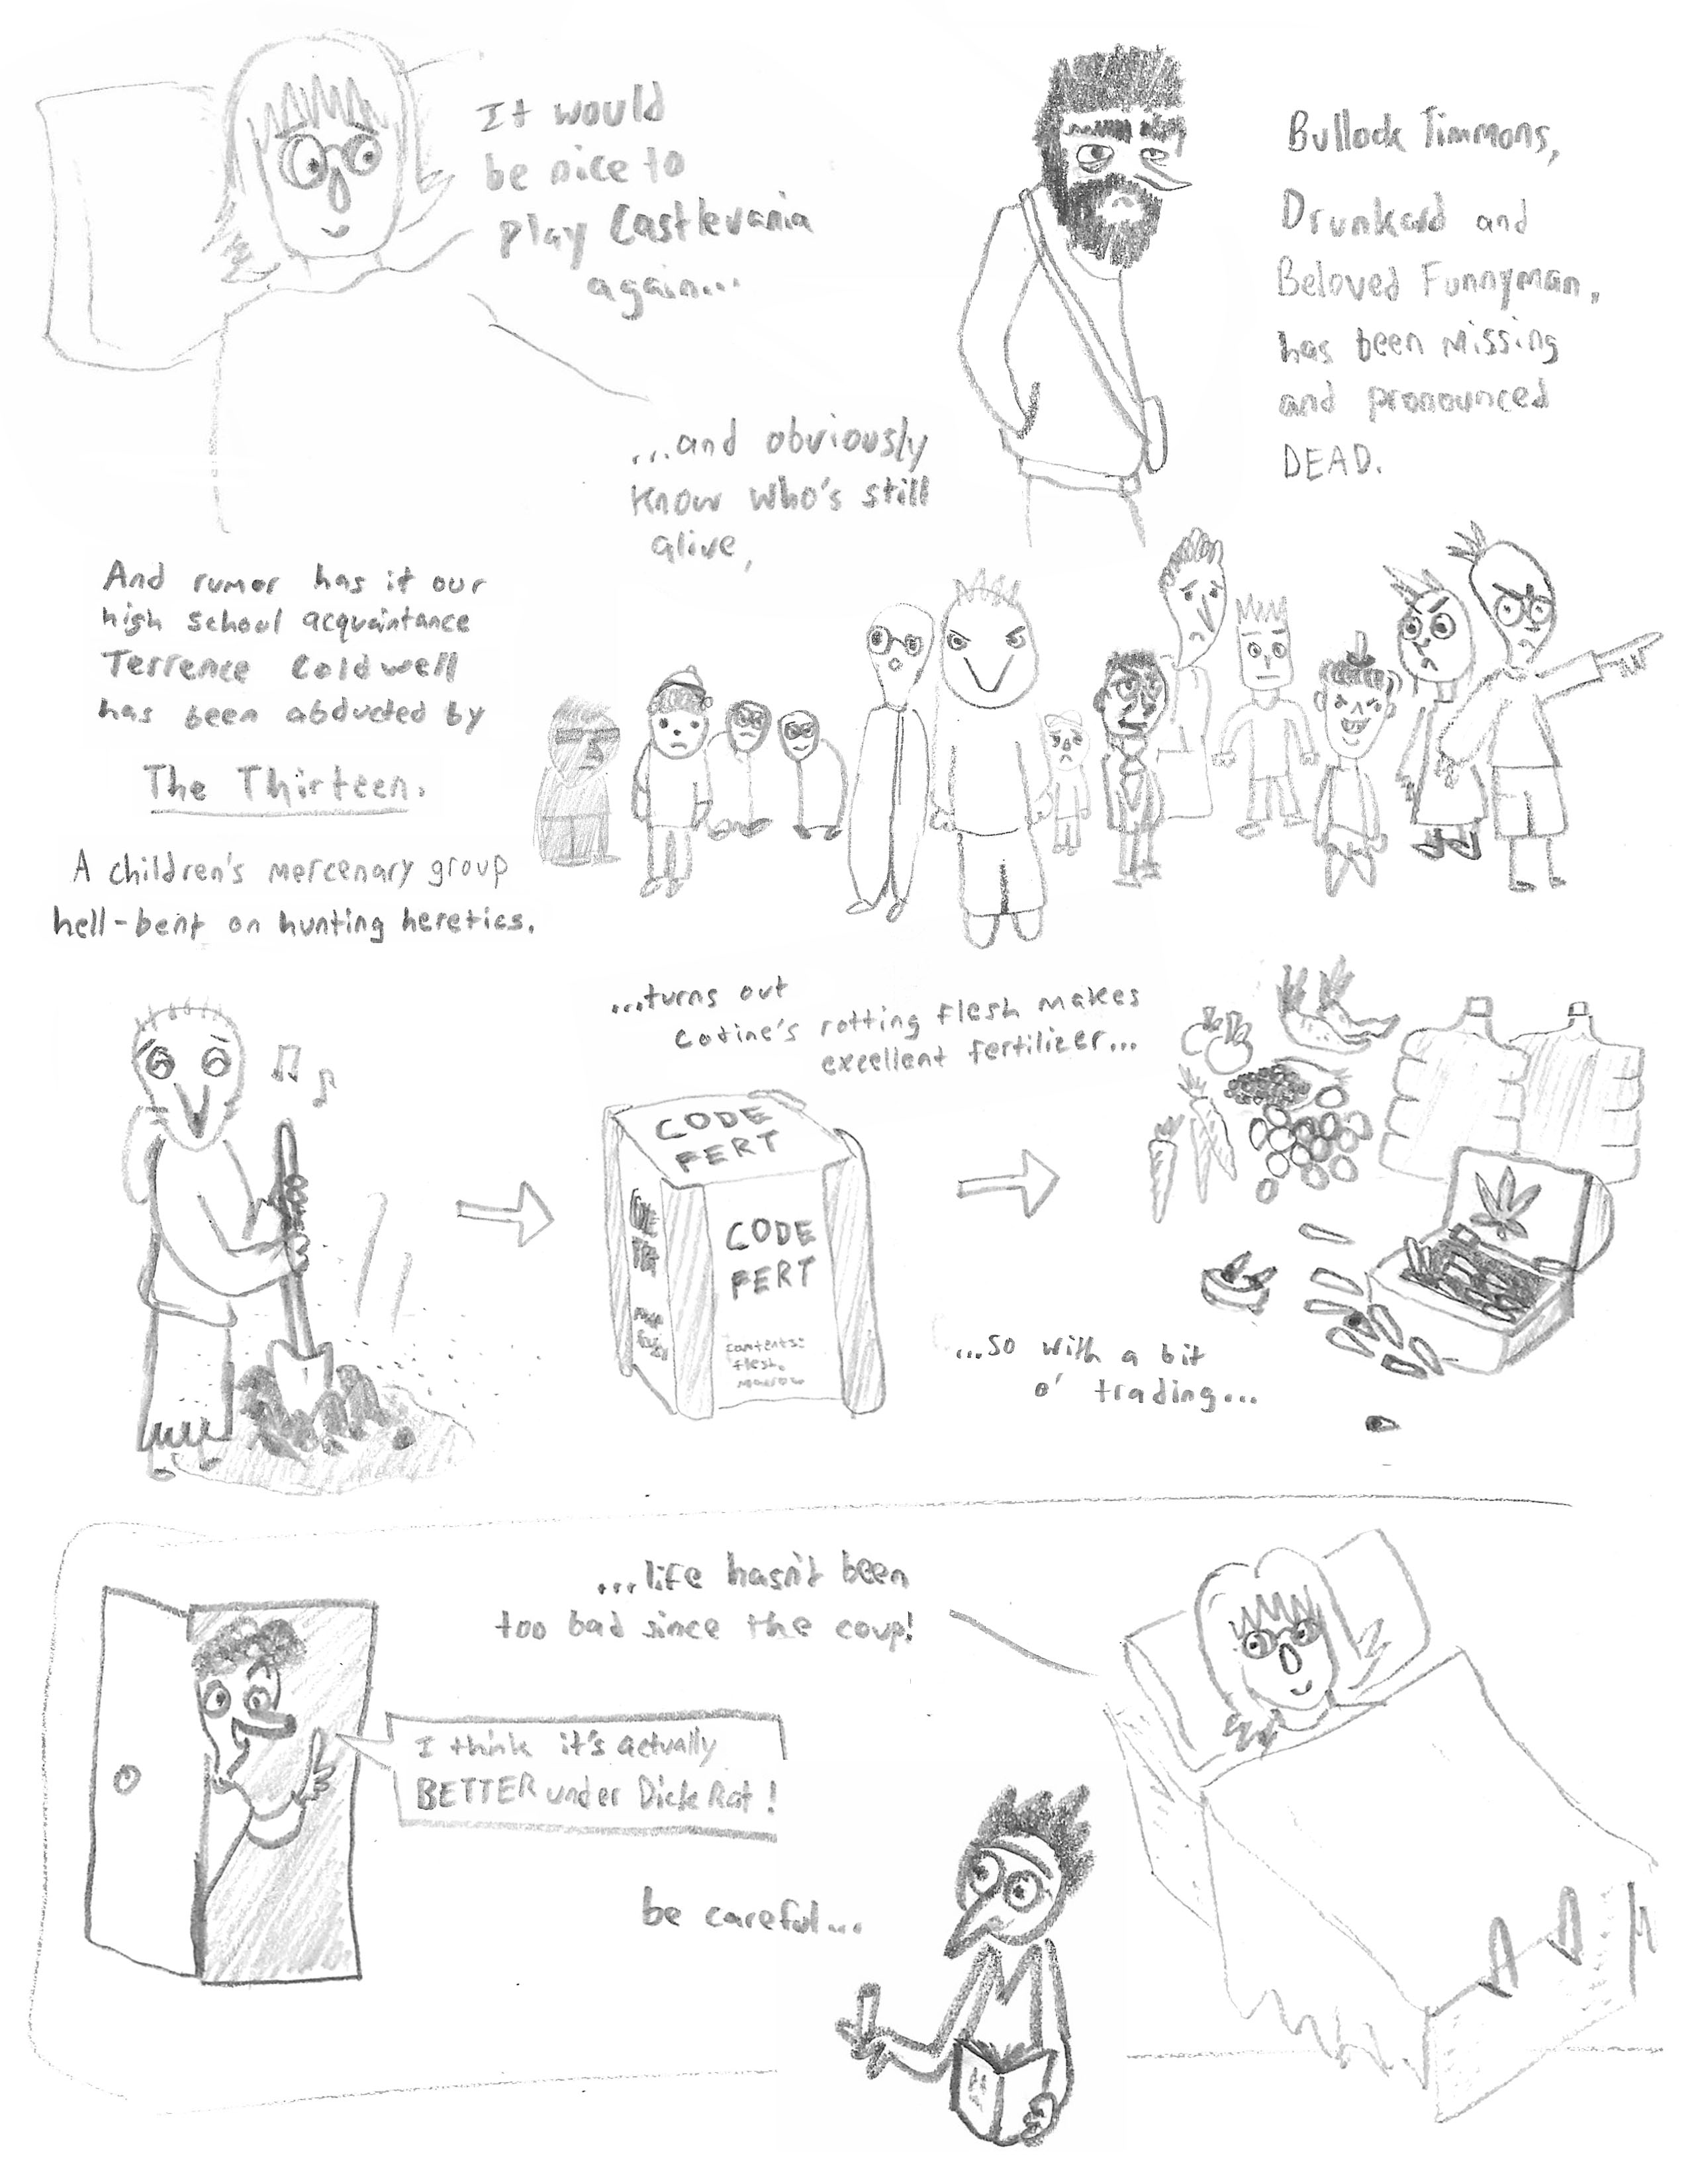 It would
be nice to
play Castlevania
again...
Bullock Timmons,
Drunkard and
Beloved Funnyman,
has been missing
and pronounced
DEAD.
...and obviously
know who's still
alive,
And rumor has it our
high school acquaintance
Terrence Coldwell
has been abducted by
The Thirteen.
A children's mercenary group
hell-bent on hunting heretics.
...turns out
Cotine's rotting flesh makes
excellent fertilizer...
CODE
FERT
CODE
FERT
contents:
flesh,
marrow
...so with a bit
o' trading...
...life hasn't been
too bad since the coup!
I think it's actually
BETTER under Dick Rat!
be careful...